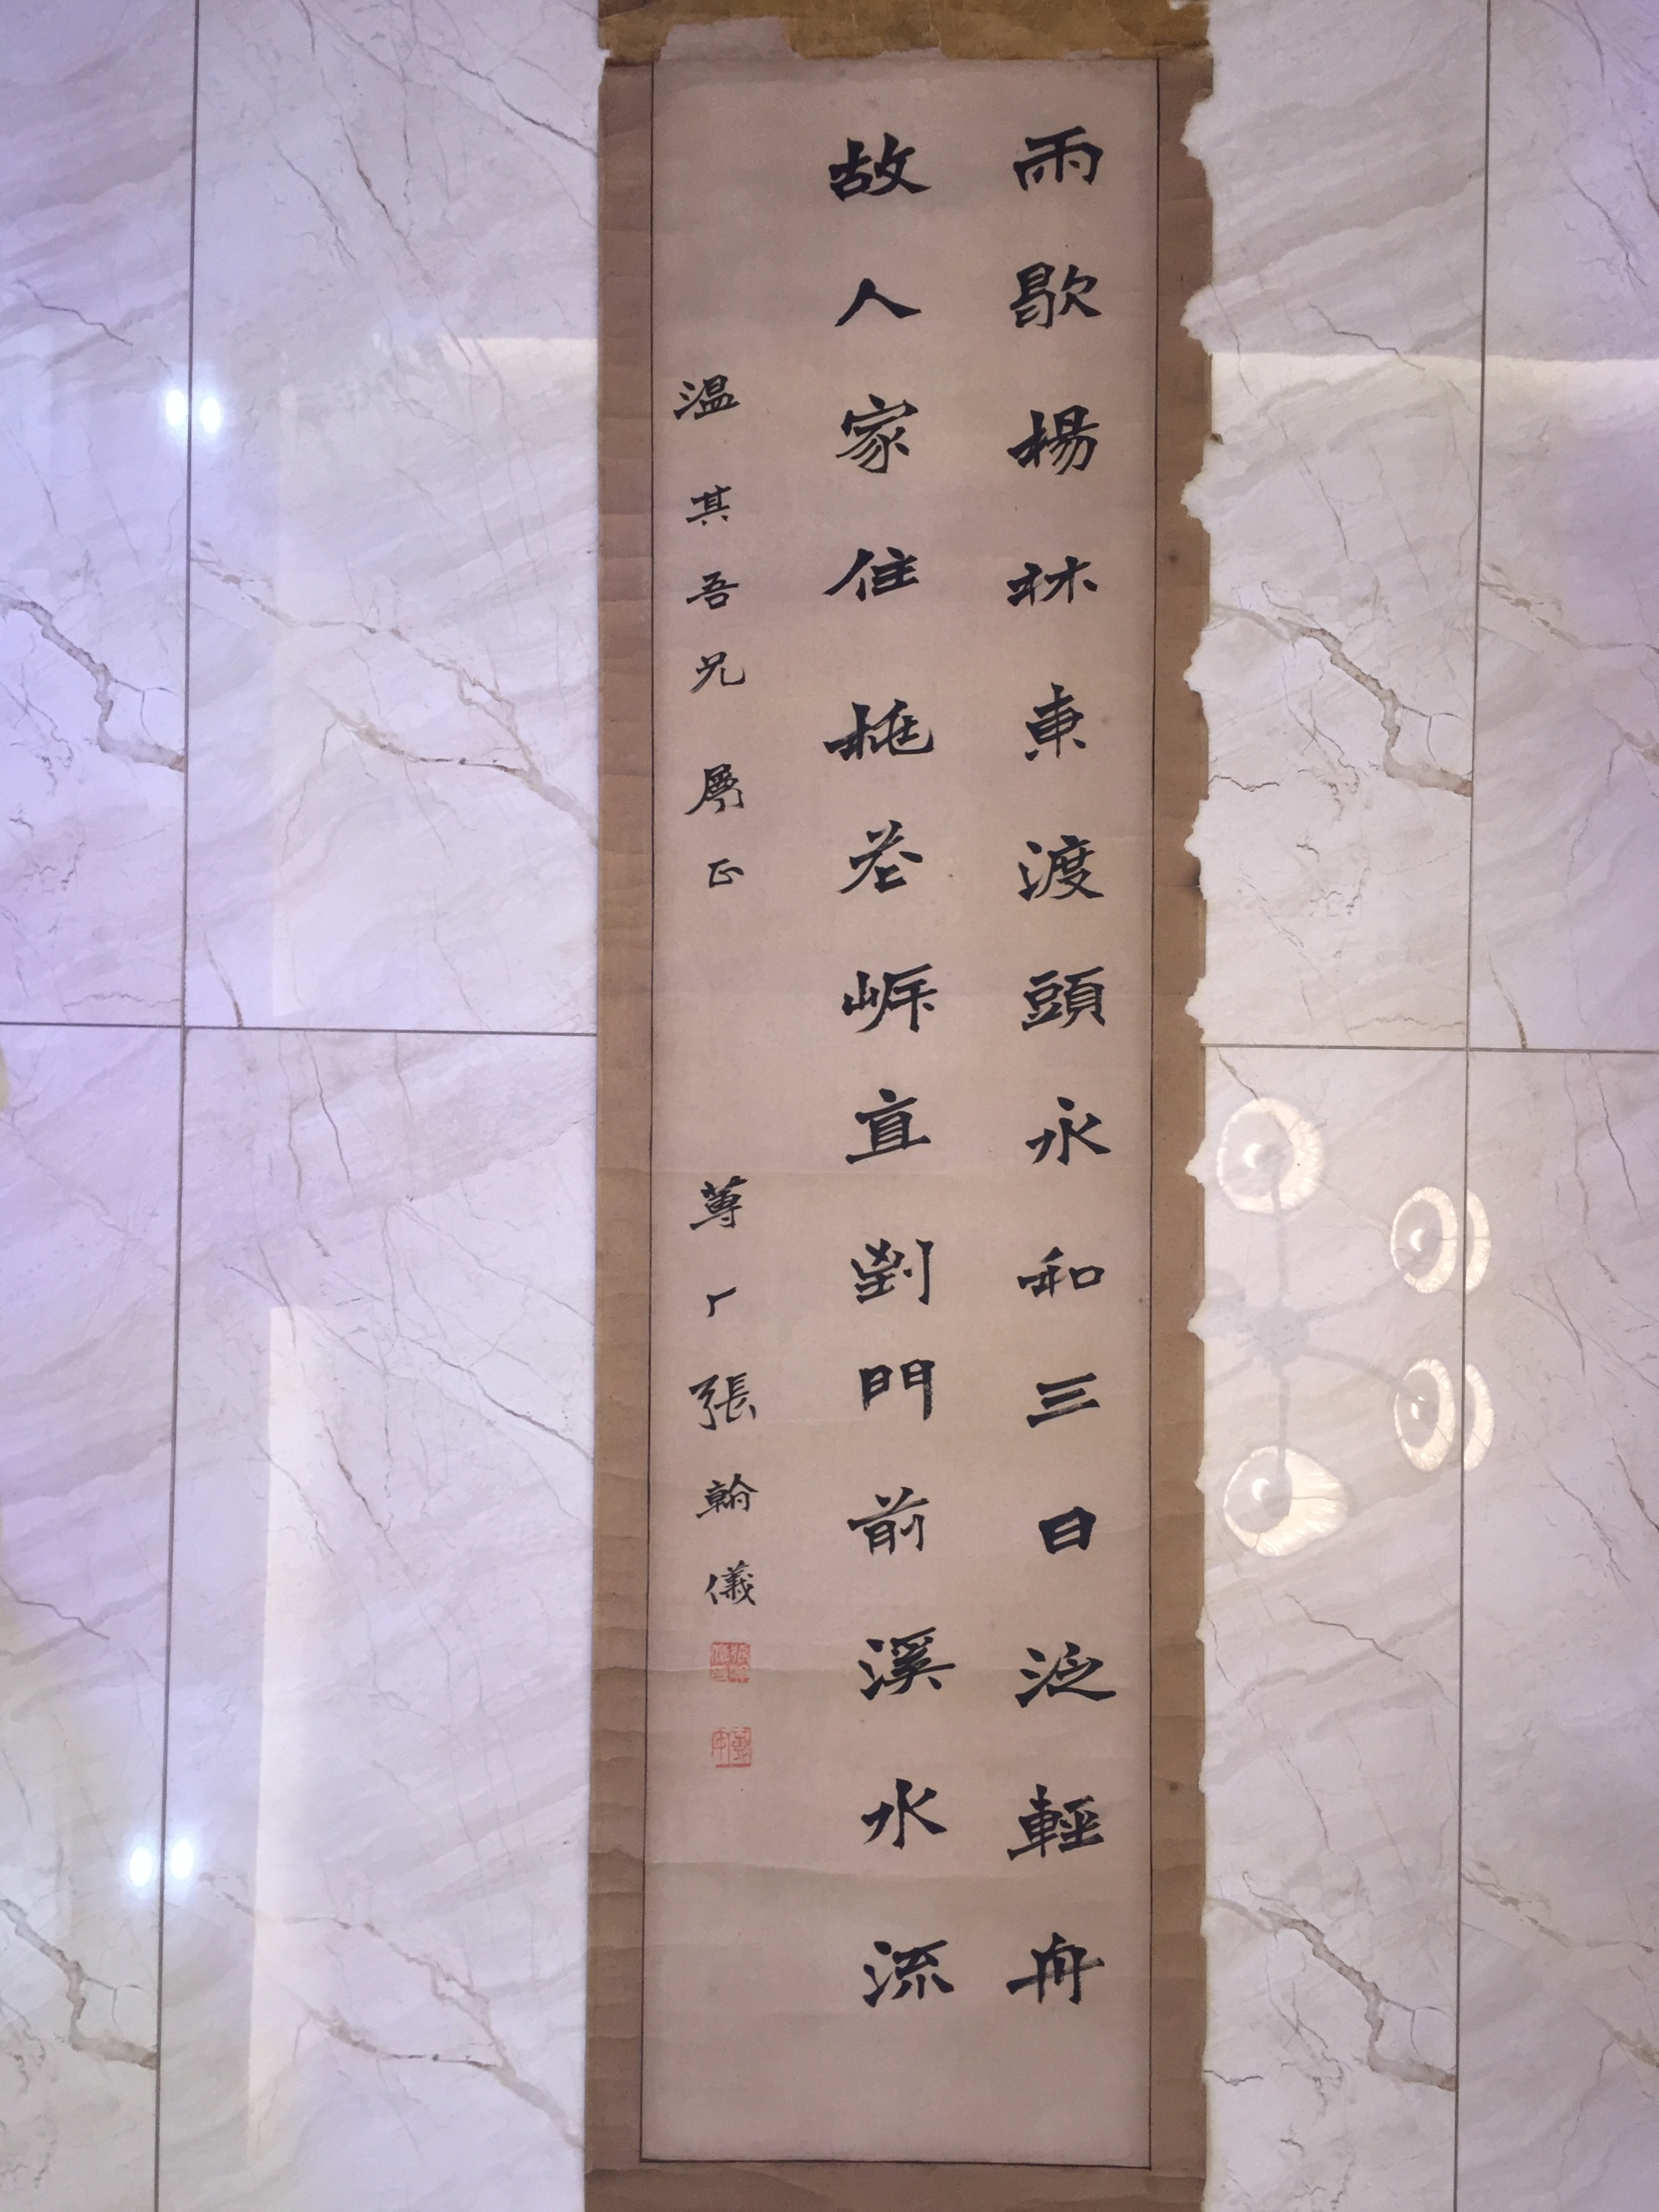 雨歇楊林東渡頭永和三日泛輕舟
故人家住桃花岸直到門前溪水流
温其吾兄屬正 蓴厂張翰儀